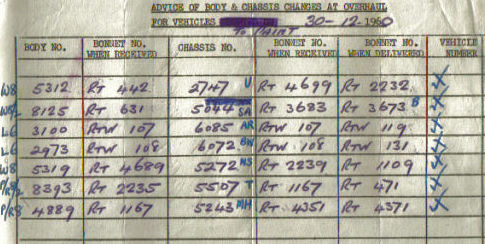 ADVICE OF BODY & CHASSIS CHANGES AT OVERHAUL
FOR VEHICLES 30-12-1960
TO PAINT
BODY NO. BONNET NO. WHEN RECEIVED CHASSIS NO. BONNET NO. WHEN RECEIVED BONNET NO. WHEN DELIVERED VEHICLE NUMBER
W8 5312 RT 442 2747 U RT 4699 RT 2232
8125 RT 631 5044 SA RT 3683 RT 3673 B
L6 3100 RTW 107 6085 AR RTW 107 RTW 119
L6 2973 RTW 108 6072 BW RTW 108 RTW 131
W8 5319 RT 4689 5272 NS RT 2239 RT 1109
8393 RT 2235 5507 T RT 1167 RT 471
P/R8 4889 RT 1167 5243 MH RT 4351 RT 4371